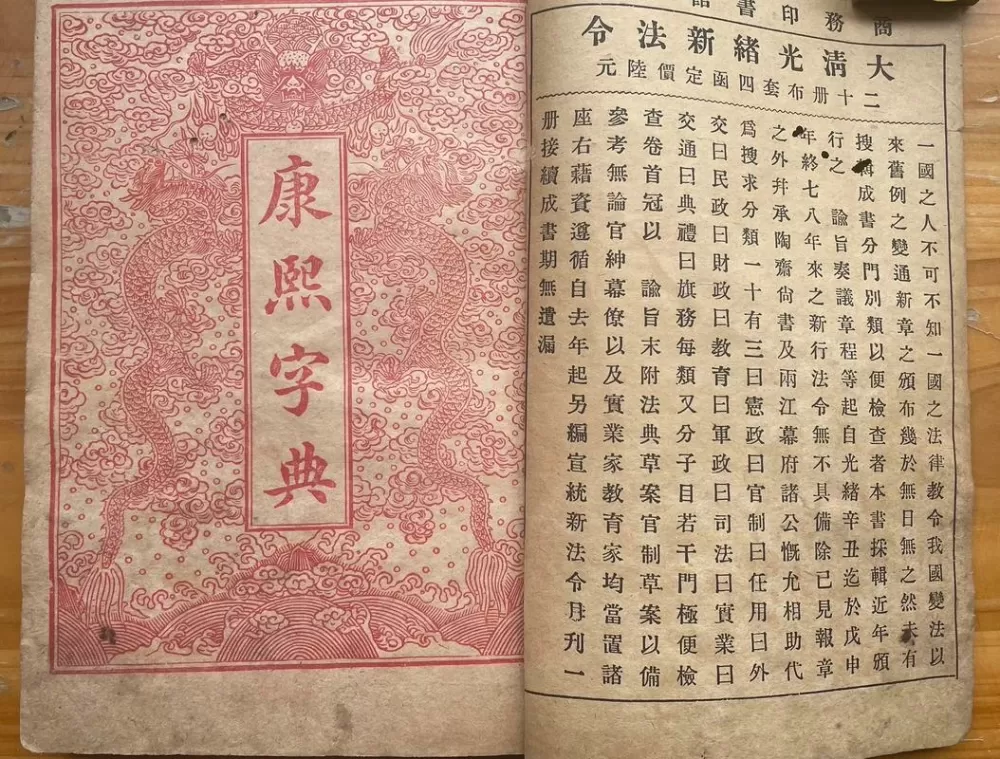 商務印書
大清光緒新法令
二十册布套四函定價陸元
一國之人不可不知一國之法律教令我國變法以
來舊例之變通新章之頒布幾於無日無之然未有
搜輯成書分門別類以便檢查者本書採輯近年頒
行之 諭旨奏議章程等起自光緒辛丑迄於戊申
年終七八年來之新行法令無不具備除已見報章
之外幷承陶齋尙書及兩江幕府諸公慨允相助代
爲搜求分類一十有三曰憲政曰官制曰任用曰外
交曰民政曰財政曰教育曰軍政曰司法曰實業曰
交通曰典禮曰旗務每類又分子目若干門極便檢
查卷首冠以 諭旨末附法典草案官制草案以備
參考無論官紳幕僚以及實業家教育家均當置諸
座右藉資遵循自去年起另編宣統新法令月刊一
册接續成書期無遺漏
康熙字典